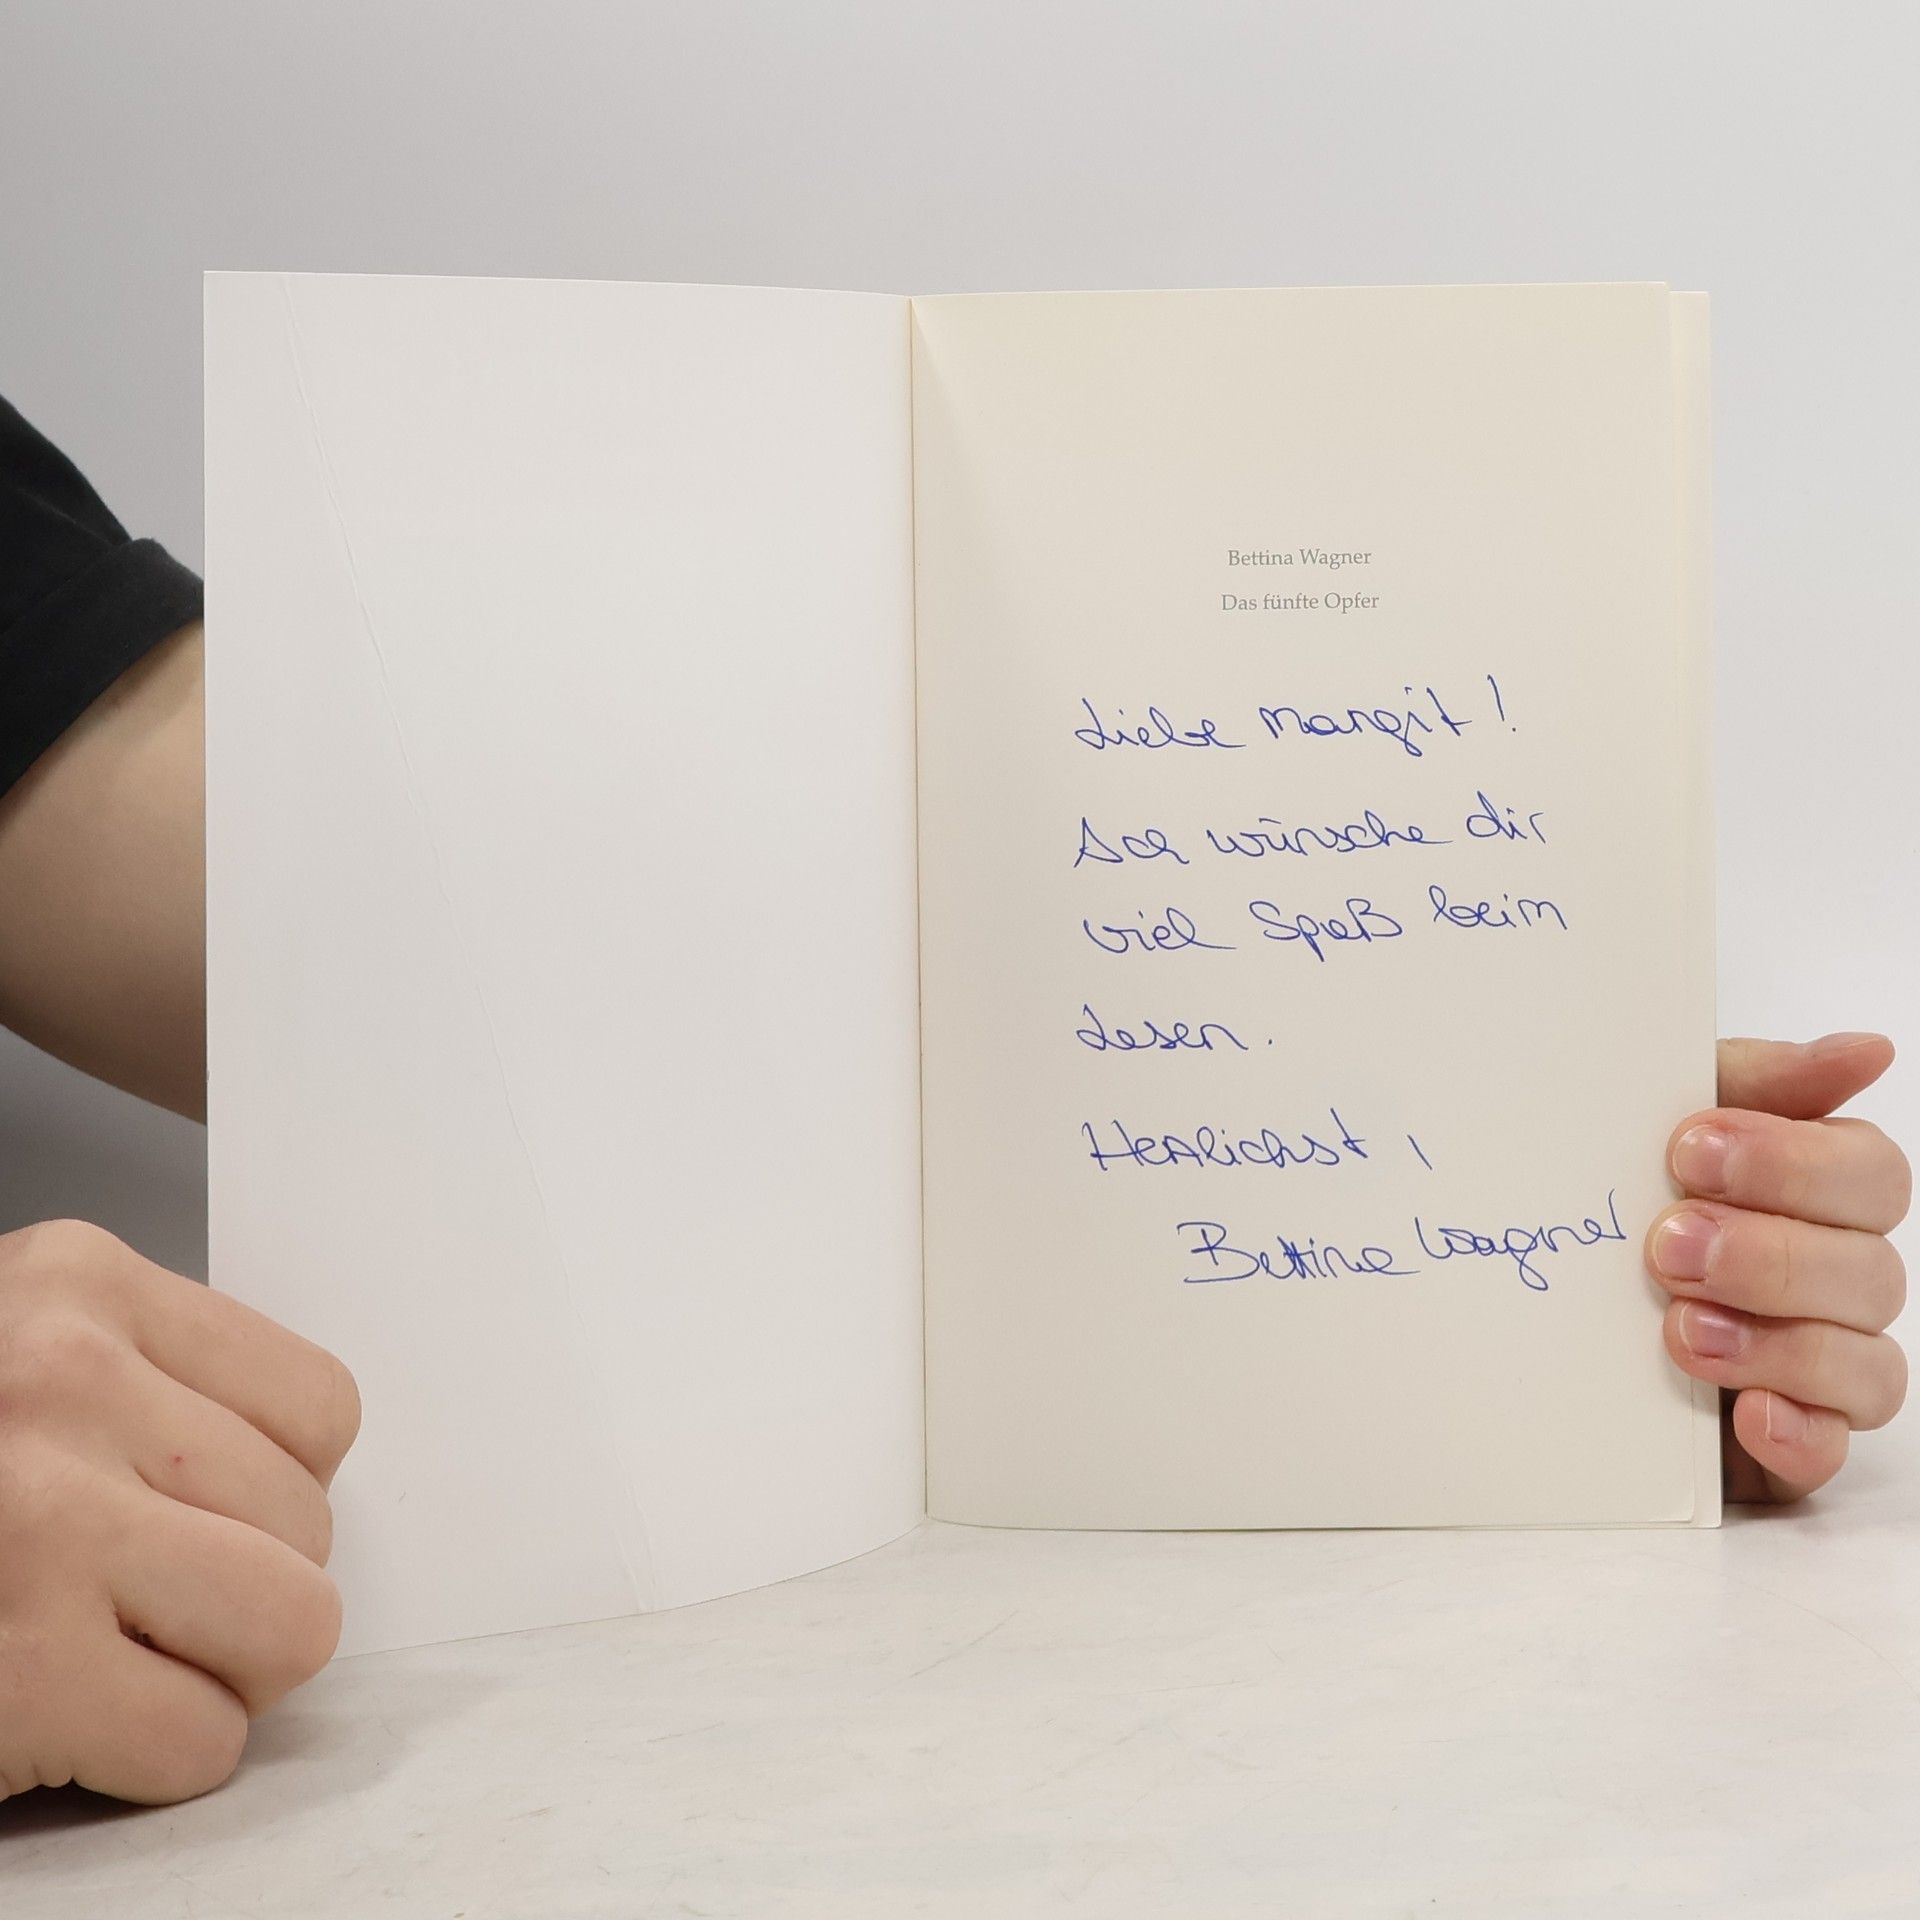 Bettina Wagner
Das fünfte Opfer
Liebe Margit!
Ich wünsche dir
viel Spaß beim
Lesen.
Herzlichst,
Bettina Wagner